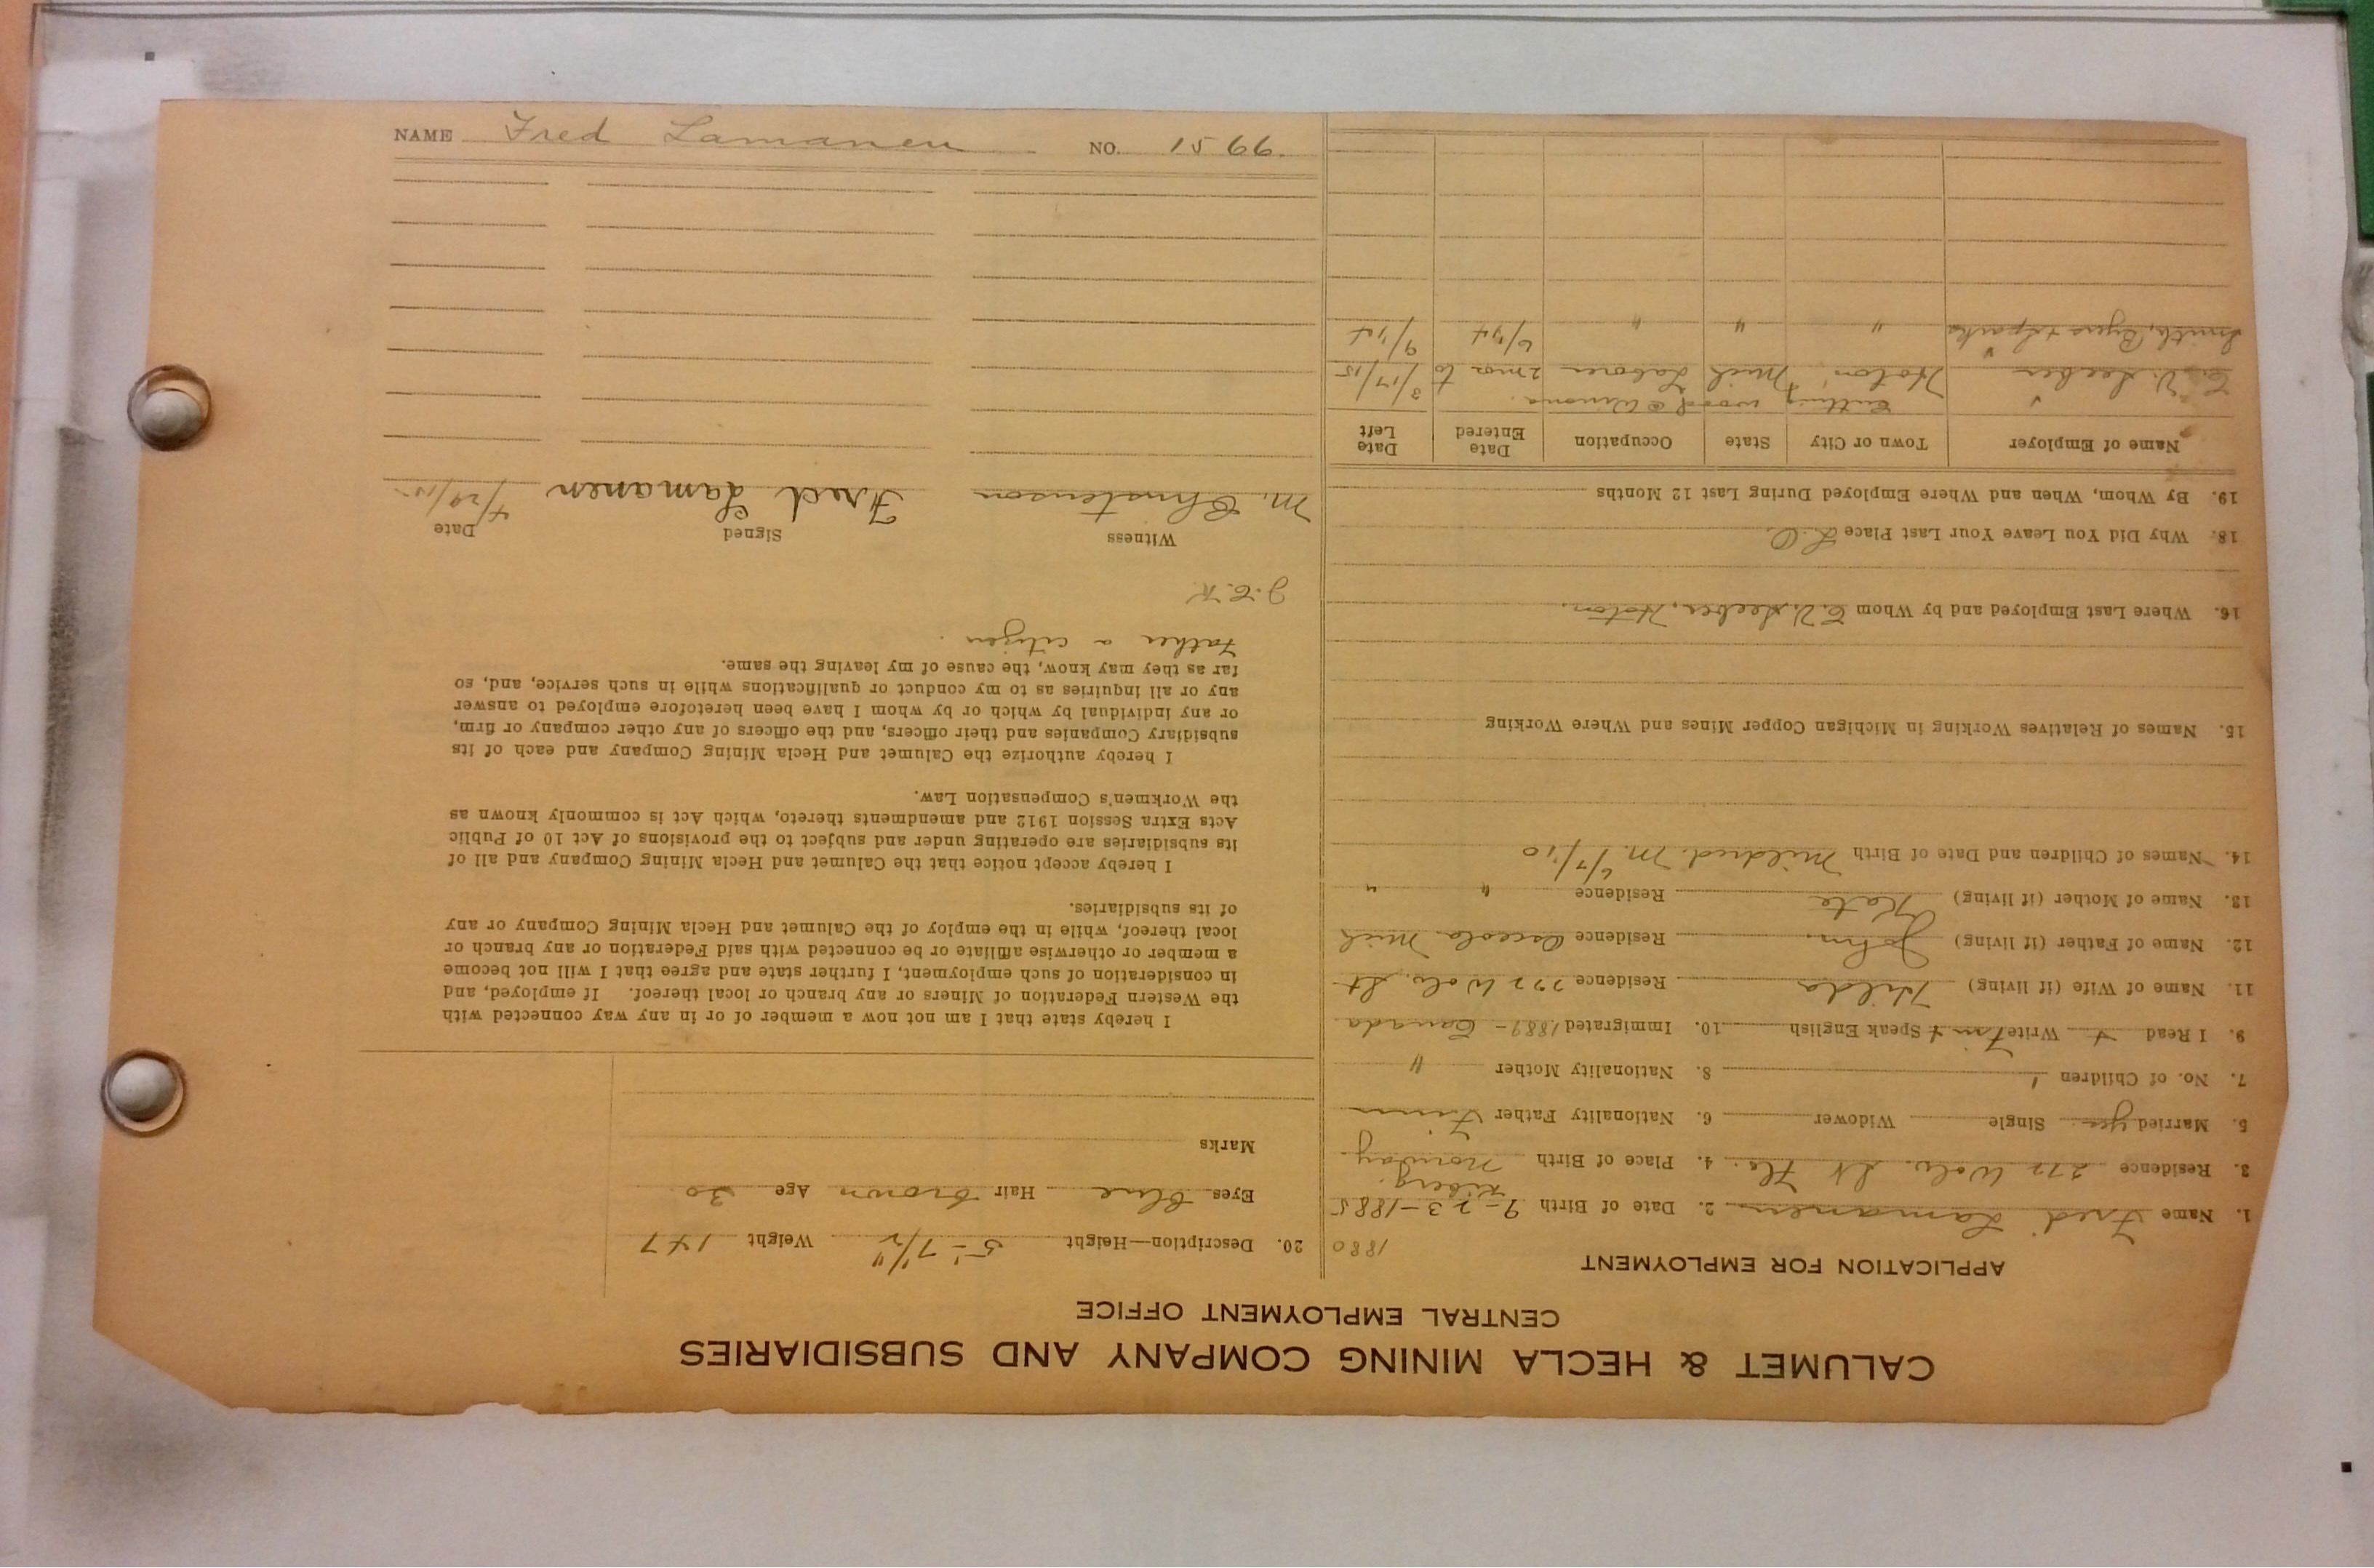 NAME Fred Lamanen NO. 1566
CALUMET & HECLA MINING COMPANY AND SUBSIDIARIES
CENTRAL EMPLOYMENT OFFICE
APPLICATION FOR EMPLOYMENT
1880
1. Name Fred Lamanen 2. Date of Birth 9-23-1885
3. Residence 272 Wolv. St Fla. 4. Place of Birth Norway
5. Married yes Single Widower 6. Nationality Father Finn
7. No. of Children 1 8. Nationality Mother "
9. I Read + Write Finn + Speak English 10. Immigrated 1889 - Canada
11. Name of Wife (if living) Hilda Residence 272 Wolv. St
12. Name of Father (if living) John Residence Osceola Mich
13. Name of Mother (if living) Kate Residence " "
14. Names of Children and Date of Birth Mildred. M. 6/7/10
15. Names of Relatives Working in Michigan Copper Mines and Where Working
16. Where Last Employed and by Whom C.V. Seeber, Hoton.
18. Why Did You Leave Your Last Place L.O.
19. By Whom, When and Where Employed During Last 12 Months
Name of Employer Town or City State Occupation Date Entered Date Left
Cutting wood @ Winona.
C.V. Seeber Hoton, Mich Laborer 2 mos to 3/17/15
Smith, Byers + Sparks " " " 6/14 9/14
20. Description—Height 5'-7 1/2" Weight 147
Eyes Blue Hair Brown Age 30
Marks
I hereby state that I am not now a member of or in any way connected with
the Western Federation of Miners or any branch or local thereof. If employed, and
in consideration of such employment, I further state and agree that I will not become
a member or otherwise affiliate or be connected with said Federation or any branch or
local thereof, while in the employ of the Calumet and Hecla Mining Company or any
of its subsidiaries.
I hereby accept notice that the Calumet and Hecla Mining Company and all of
its subsidiaries are operating under and subject to the provisions of Act 10 of Public
Acts Extra Session 1912 and amendments thereto, which Act is commonly known as
the Workmen's Compensation Law.
I hereby authorize the Calumet and Hecla Mining Company and each of its
subsidiary Companies and their officers, and the officers of any other company or firm,
or any individual by which or by whom I have been heretofore employed to answer
any or all inquiries as to my conduct or qualifications while in such service, and, so
far as they may know, the cause of my leaving the same.
Father a citizen.
Witness Signed Date
M. Christenson Fred Lamanen 4/29/15